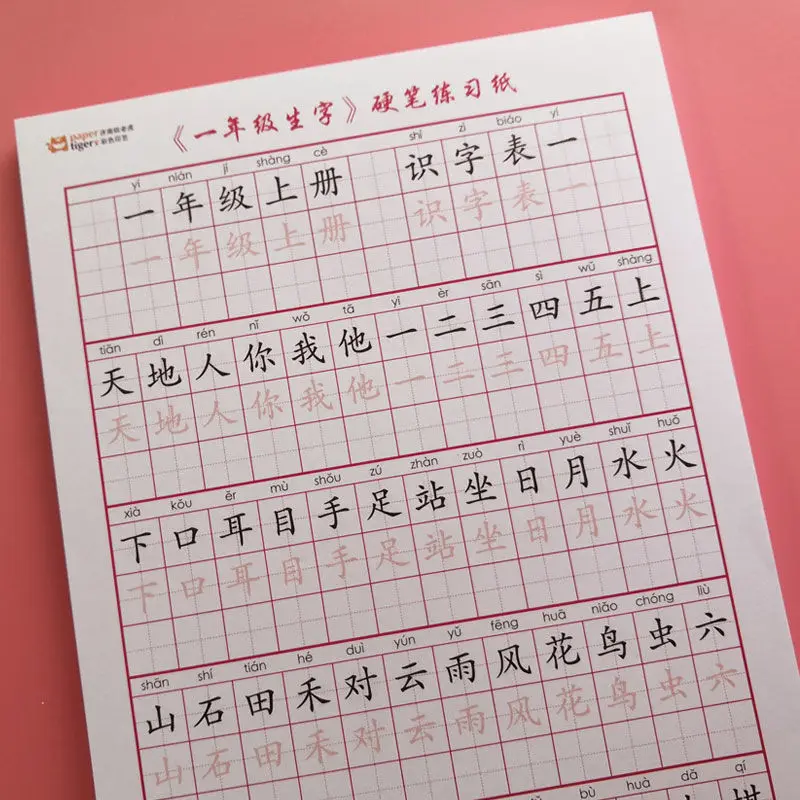 paper 济南纸老虎
tigers 彩色印艺
《一年级生字》硬笔练习纸
yí nián jí shàng cè shí zì biǎo yī
一年级上册 识字表一
一年级上册 识字表一
tiān dì rén nǐ wǒ tā yī èr sān sì wǔ shàng
天地人你我他一二三四五上
天地人你我他一二三四五上
xià kǒu ěr mù shǒu zú zhàn zuò rì yuè shuǐ huǒ
下口耳目手足站坐日月水火
下口耳目手足站坐日月水火
shān shí tián hé duì yún yǔ fēng huā niǎo chóng liù
山石田禾对云雨风花鸟虫六
山石田禾对云雨风花鸟虫六
bù huà dǎ qí